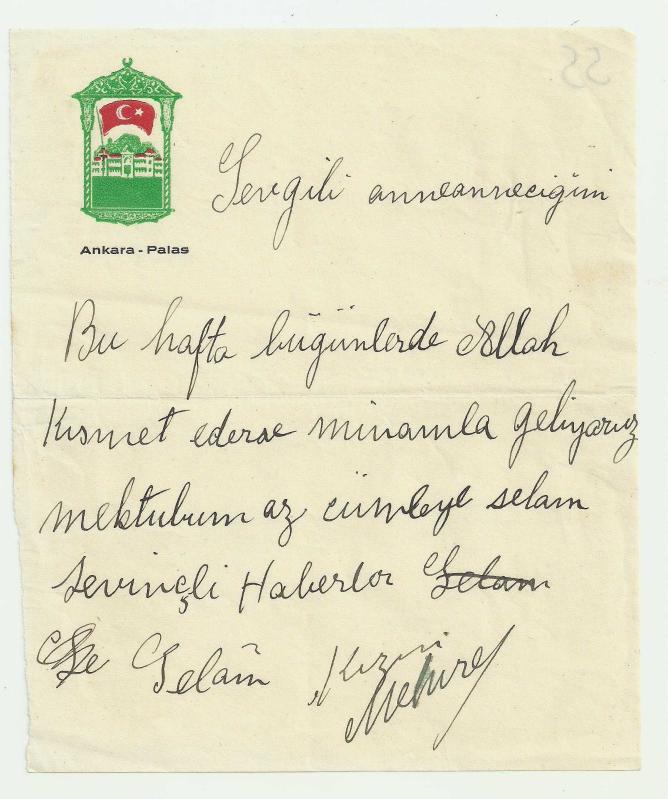 22
Ankara - Palas
Sevgili anneanneciğim
Bu hafta bügünlerde Allah
Kısmet ederse minamla geliyaruz
mektubum az cümleye selam
Sevinçli Haberlor Selam
Se Selâm Kızın